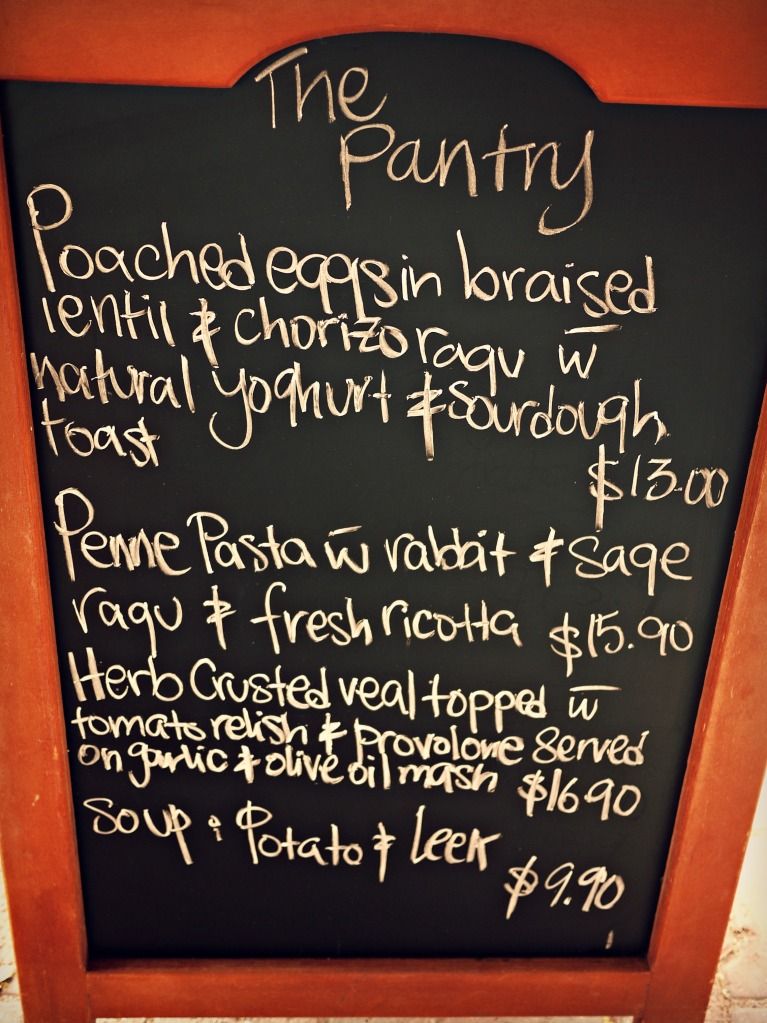 The
Pantry
Poached eggs in braised
lentil & chorizo ragu w̅
natural yoghurt & sourdough
toast
$13.00
Penne Pasta w̅ rabbit & sage
ragu & fresh ricotta $15.90
Herb Crusted veal topped w̅
tomato relish & provolone Served
on garlic & olive oil mash $16.90
Soup : Potato & Leek
$9.90